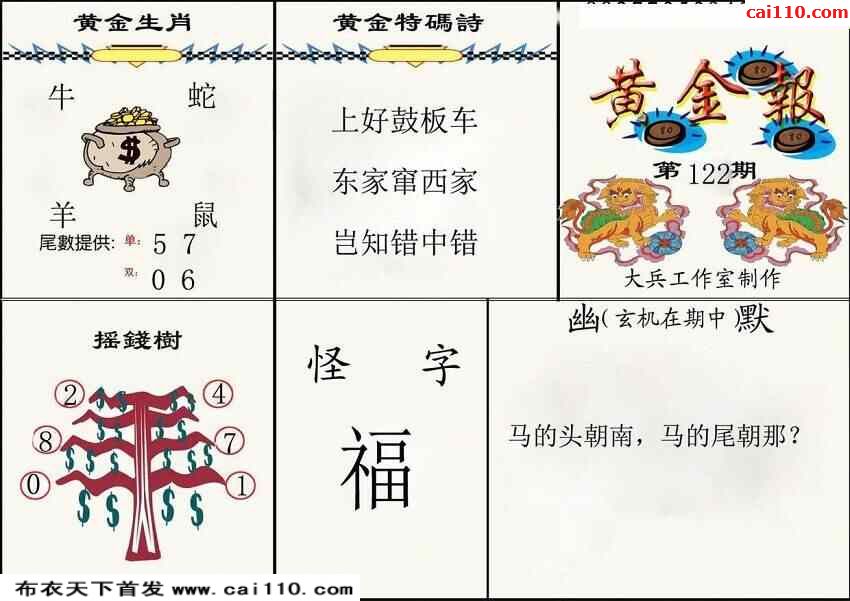 cai110.com
黄金生肖
牛 蛇
$
羊 鼠
尾數提供: 单: 5 7
双: 0 6
黄金特碼詩
上好鼓板车
东家窜西家
岂知错中错
黄金報
80
80
80
第122期
大兵工作室制作
摇錢樹
2 4
8 7
0 1
怪 字
福
幽(玄机在期中)默
马的头朝南，马的尾朝那？
布衣天下首发 www.cai110.com